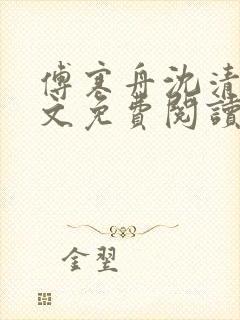 傅寒舟沈清
文免費閱讀
金翌